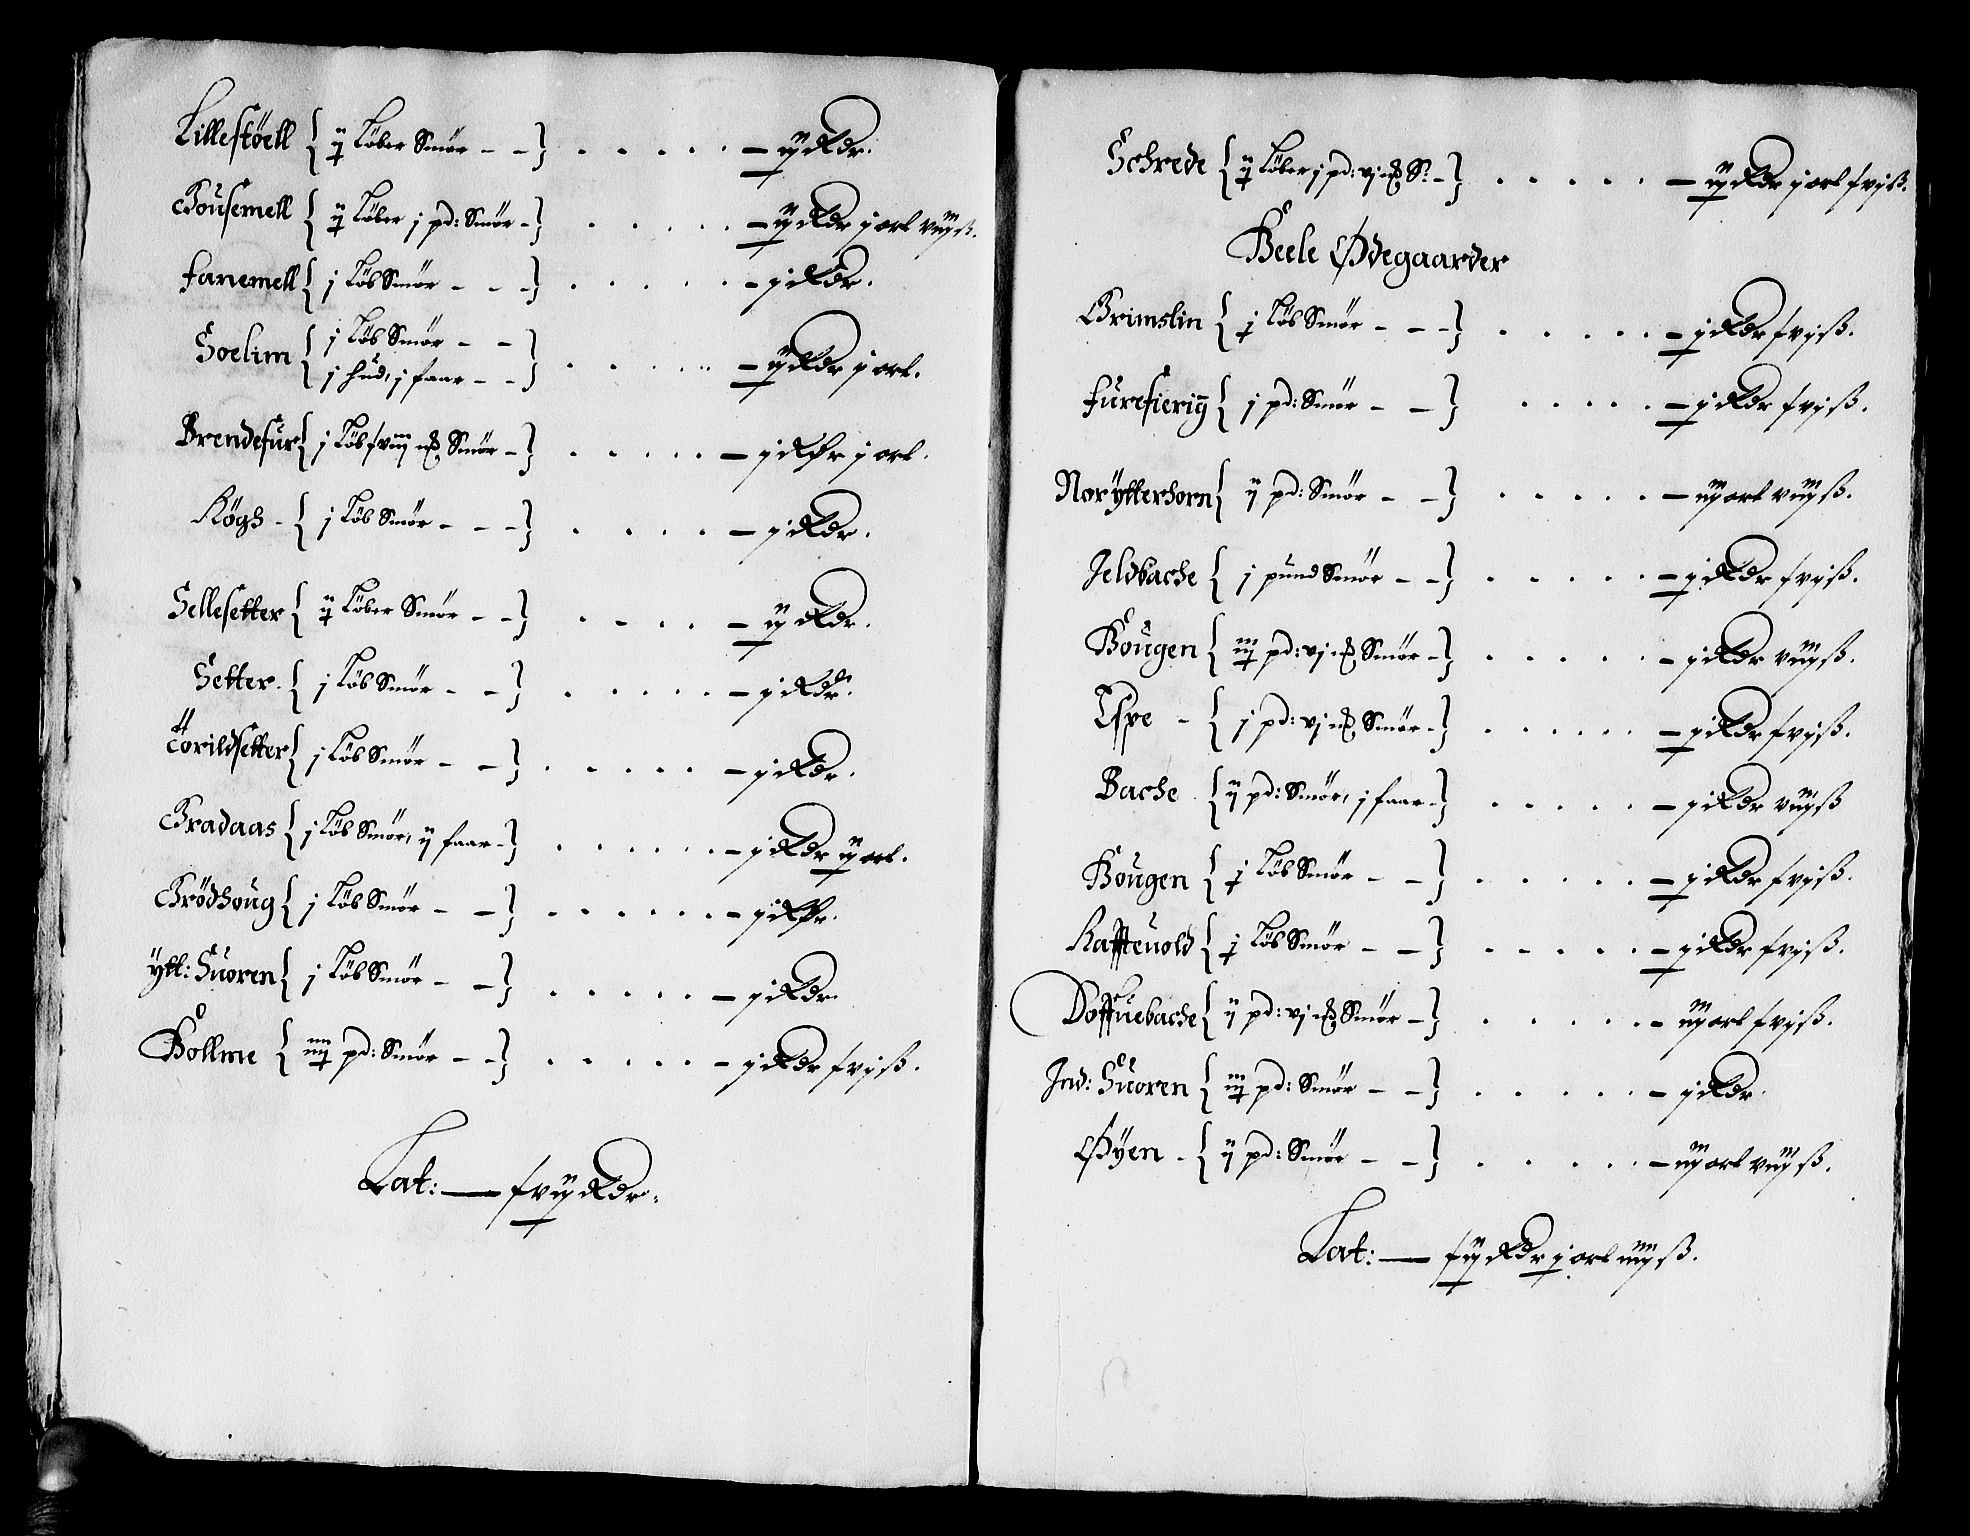 Lillestöell { ij Löber Smör - - } . . . . . - ij Rdr.
Housemell { ij Löber j pd: Smör - } . . . . . - ij Rdr j ort viij ß.
Fanemell { j Löb Smör - - - } . . . . . - j Rdr.
Soelim { j Löb Smör - -
j hud, j faar - - } . . . . . - ij Rdr j ort.
Brendefur { j Löb Smör - } . . . . . - j Rdr j ort.
Högh - { j Löb Smör - - - } . . . . - j Rdr.
Sellesetter { ij Löber Smör - - } . . . . - ij Rdr.
Setter - { j Löb Smör - - } . . . . . - j Rdr.
Torildsetter { j Löb Smör - - } . . . . . - j Rdr.
Gradaas { j Löb Smör, ij faar - } . . . . . - j Rdr ij ort.
Brödhoug { j Löb Smör - - } . . . . . - j Rdr.
ytt: Suoren { j Löb Smör - - } . . . . . - j Rdr.
Hollme { iiij pd: Smör - - } . . . . . - j Rdr xvj ß.
Lat: — xvij Rdr.
Schrede { ij Löber j pd: vj mk S: - } . . . . . - ij Rdr j ort xvj ß.
Heele Ødegaarder
Grimslin { j Löb Smör - - - } . . . . . - j Rdr xvj ß.
Furefierig { j pd: Smör - - } . . . . . - j Rdr xvj ß.
Nor ytterhorn { ij pd: Smör - - } . . . . . - iij ort viij ß.
Jeldbache { j pund Smör - - } . . . . . - j Rdr xvj ß.
Hougen { iij pd: vj mk Smör - } . . . . . - j Rdr viij ß.
Espe - { j pd: vj mk Smör - } . . . . . - j Rdr xvj ß.
Bache { ij pd: Smör, j faar - } . . . . . - j Rdr viij ß
Hougen { j Löb Smör - - } . . . . . - j Rdr xvj ß.
Raffteuold { j Löb Smör - - } . . . . . - j Rdr xvj ß.
Doffuebache { ij pd: vj mk Smör - } . . . . . - iij ort xvj ß.
Ind: Suoren { iij pd: Smör - - } . . . . . - j Rdr.
Øyen - { ij pd: Smör - - } . . . . . - iij ort viij ß.
Lat: — xiij Rdr j ort iiij ß.